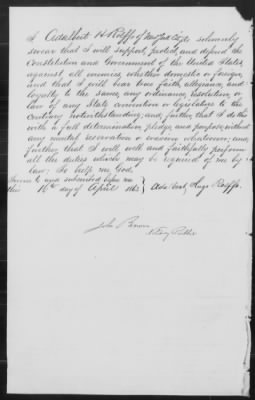 I Adalbert H Roeffs of New York City do solemnly
swear that I will support, protect, and defend the
Constitution and Government of the United States,
against all enemies, whether domestic or foreign,
and that I will bear true faith, allegiance, and
loyalty to the same, any ordinance, resolution, or
law of any State convention or legislature to the
contrary notwithstanding; and, further, that I do this
with a full determination, pledge, and purpose, without
any mental reservation or evasion whatsoever; and,
further, that I will well and faithfully perform
all the duties which may be required of me by
law: So help me God.
Sworn to and subscribed before me
this 16th day of April 1863 Adalbert Hugo Roeffs.
John
Notary Public